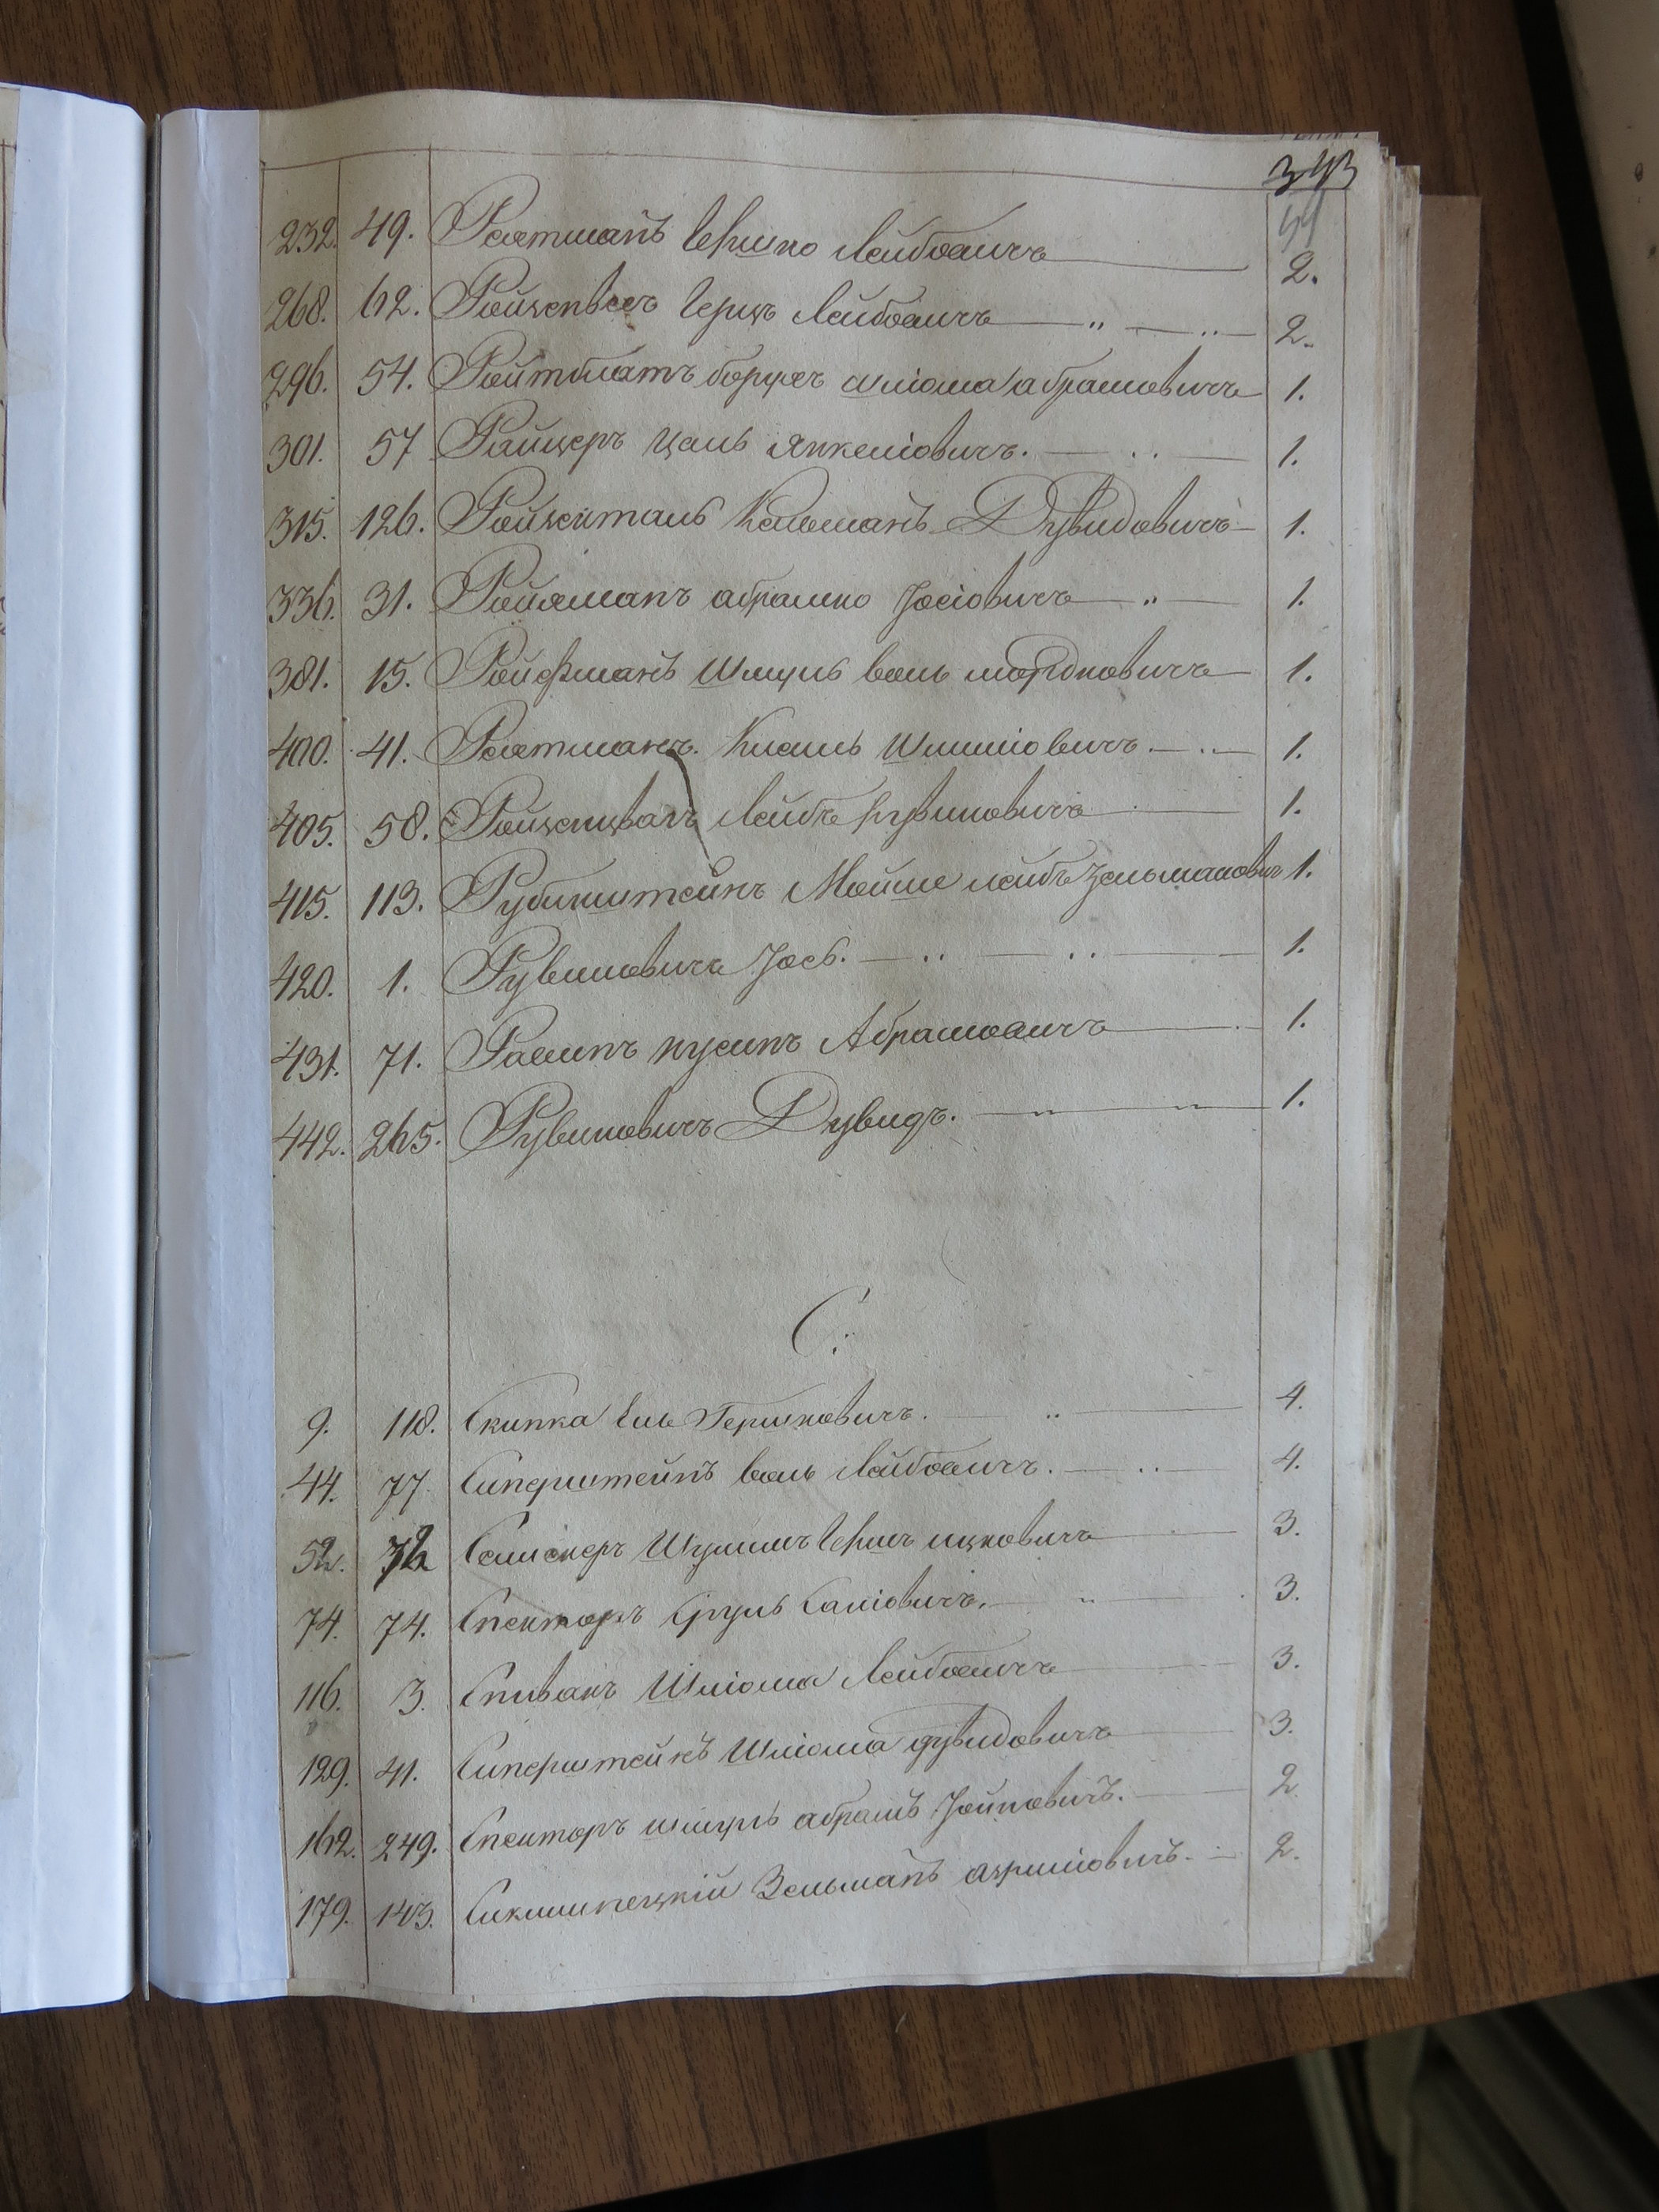 343
232. 49. Роятманъ Гершко Лейбовичъ 2.
268. 62. Ройзенвесъ Герцъ Лейбовичъ 2.
296. 54. Ройтблатъ борухъ шліома абрамовичъ 1.
301. 57 Райзеръ Цаль Янкеліовичъ. 1.
315. 126. Ройзенталь Кельманъ Дувидовичъ 1.
336. 31. абрамко Іосіовичъ 1.
381. 15. Ройфманъ Шмуль волъ мордковичъ 1.
400. 41. Роятманъ. Кисиль Шмиліовичъ. 1.
405. 58. Ройзенцваг Лейбъ рувиновичъ 1.
415. 113. Рубинштейнъ Мойше лейбъ Зельмановичъ 1.
420. 1. Рувиновичъ Іось. 1.
431. 71. Рашинъ нусинъ Абрамовичъ 1.
442. 265. Рувиновичъ Дувидъ. 1.
С.
9. 118. Скипка Еиль Гершковичъ. 4.
44. 77. Сиперштейнъ волъ Лейбовичъ. 4.
52. Герш ицковичъ 3.
74. 74. Спекторъ Сруль Саліовичъ. 3.
116. 3. Спивакъ Шліома Лейбовичъ 3.
129. 41. Сиперштейнъ Шліома дувидовичъ 3.
162. 249. Спекторъ шмуль абрамъ Іойновичъ. 2.
179. 143. Зельманъ азриліовичъ. 2.